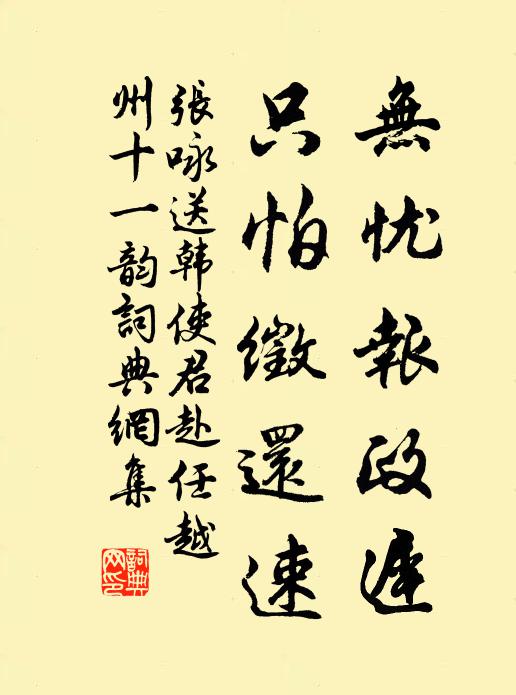 無忧報政遲
只怕徵還速
張咏送韩使君赴任越
州十一韵詞典網集
詞典
网印